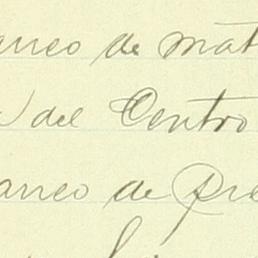 anco de mat
del Centro
anco de pre